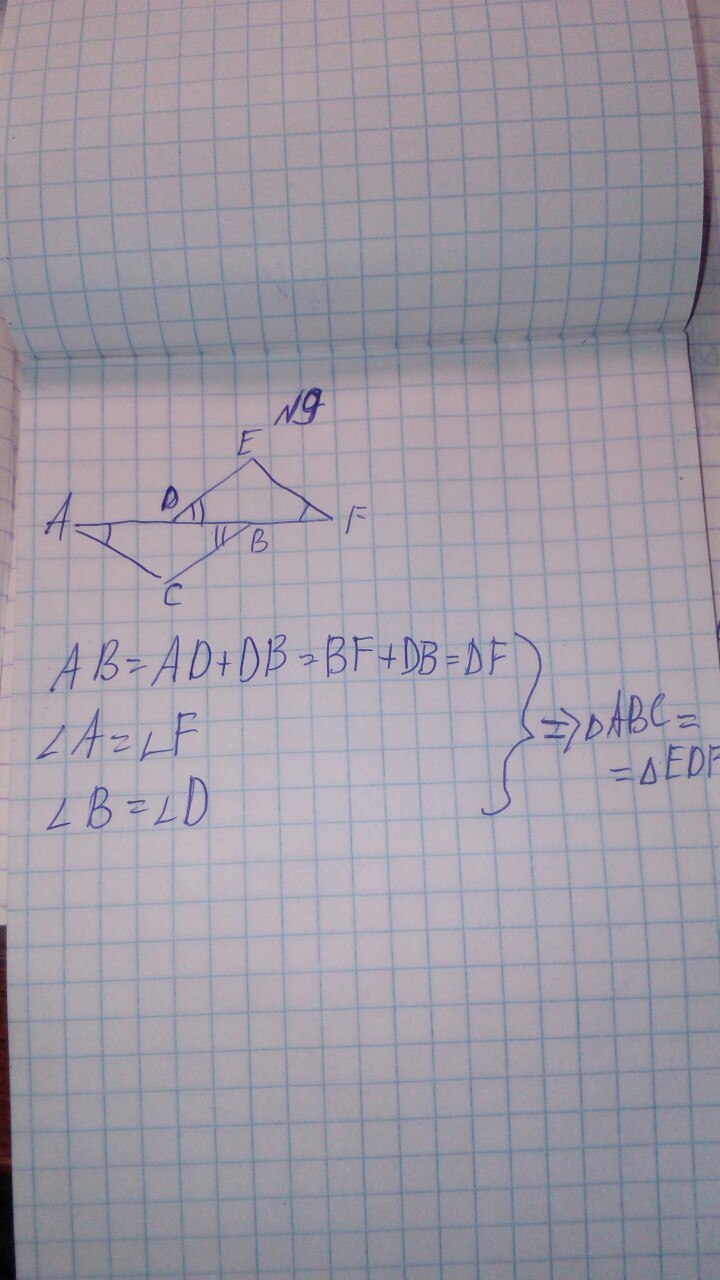 N9
E
D
A
F
B
C
AB=AD+DB=BF+DB=DF
∠A=∠F
∠B=∠D
=>ΔABC=
=ΔEDF